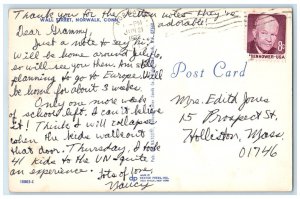 Thank you for the button notes they're
WALL STREET, NORWALK, CONN.
adorable!
Dear Grammy,
Just a note to say "hi"
Will be home around July 6,
so will see you then. Am still
planning to go to Europe. Will
be home for about 3 weeks.
Only one more week
of school left. I can't believe
it! I think I will collapse
when the kids walk out
that door. Thursday, I took
41 kids to the UN. Quite
an experience.
Lots of love,
Nancy
PM
JUN
EISENHOWER·USA
8c
Post Card
Mrs. Edith Jones
15 Prospect St.
Holliston, Mass.
01746
dp